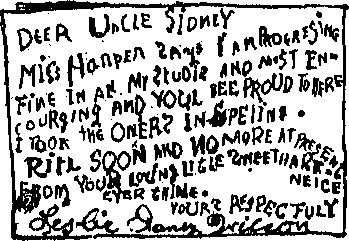 DEER UNCLE SIDNEY
MISS HARPER SAYS I AM PROGRESING
FINE IN AL MY STUDIS AND MOST EN-
COURGING AND YOUL BEE PROUD TO HERE
I TOOK THE ONERS IN SPELING.
RITE SOON AND NO MORE AT PRESENT
FROM YOUR LOVING LITLE SWEETHART-NEICE
EVER THINE.
YOURS RESPECFULY
Leslie Wilson